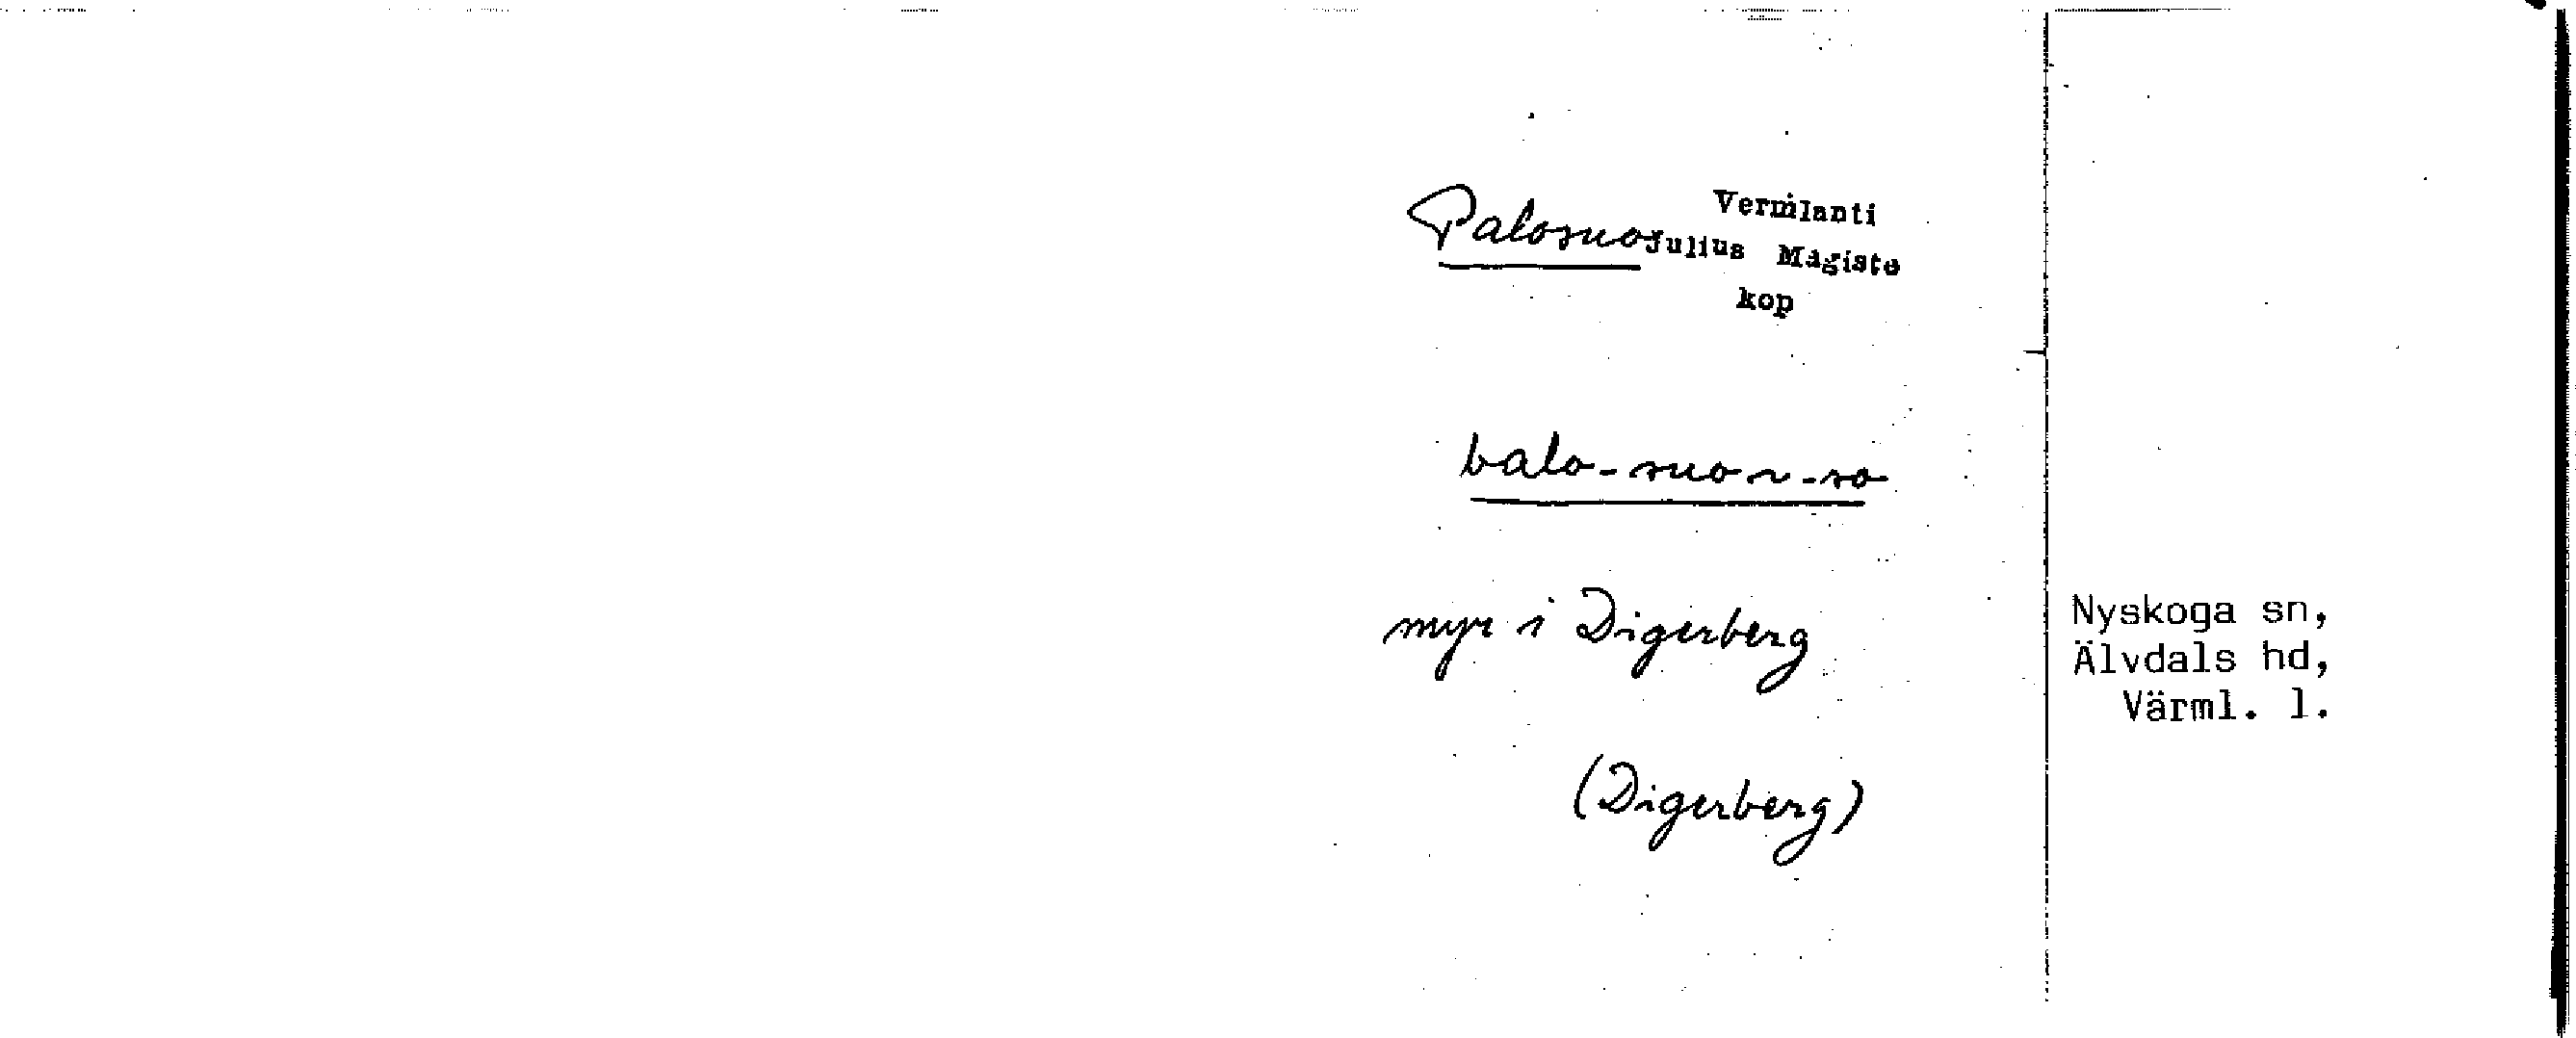 Palosuo
Vermlanti
Julius Mägiste
kop
balo-suon-so
myr i Digerberg
(Digerberg)
Nyskoga sn,
Älvdals hd,
Värml. l.